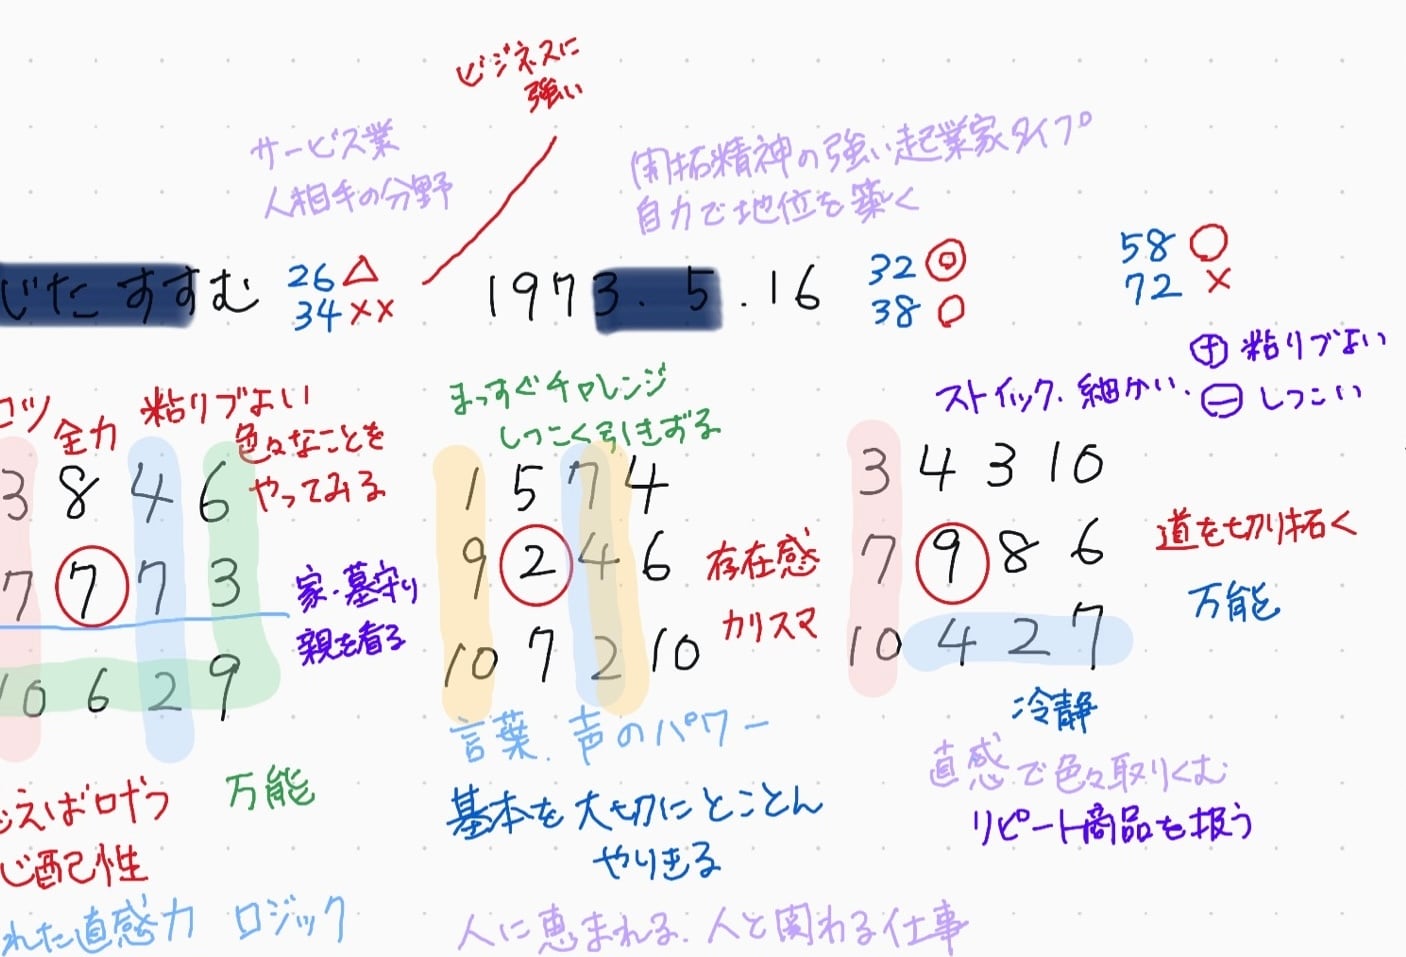 ビジネスに
強い
サービス業
人相手の分野
開拓精神の強い起業家タイプ
自力で地位を築く
じた すすむ
26 △
34 ××
1973.5.16
32 ◎
38 ○
58 ○
72 ×
⊕ 粘りづよい
ストイック、細かい、
⊖ しつこい
コツ
全力
粘りづよい
色々なことを
やってみる
まっすぐチャレンジ
しつこく引きずる
3 8 4 6
7 7 7 3
10 6 2 9
家・墓守り
親を看る
1 5 7 4
9 2 4 6
10 7 2 10
存在感
カリスマ
3 4 3 10
7 9 8 6
10 4 2 7
道を切り拓く
万能
冷静
えば口げつ
万能
心配性
れた直感力 ロジック
言葉、声のパワー
基本を大切にとことん
やりきる
人に恵まれる、人と関わる仕事
直感で色々取りくむ
リピート商品を扱う